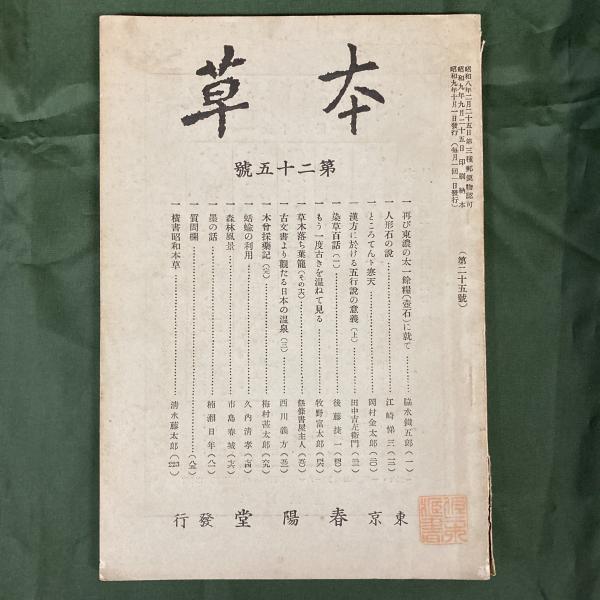 本草
第二十五號
昭和八年二月二十五日第三種郵便物認可
昭和九年九月二十五日印刷納本
昭和九年十月一日發行(毎月一回一日發行)
(第二十五號)
一 再び東濃の太一餘糧(壺石)に就て…脇水鐵五郎(一)
一 人形石の說…江崎悌三(二)
一 ところてんと寒天…岡村金太郎(二〇)
一 漢方に於ける五行說の意義(上)…田中吉左衞門
一 染草百話(一)…後藤捷一
一 もう一度古きを溫ねて見る…牧野富太郎
一 草木落ち葉籠(その六)…書屋主人
一 古文書より觀たる日本の溫泉(三)…西川義方
一 木曾採藥記(完)…梅村甚太郎
一 蛞蝓の利用…久內淸孝
一 森林風景…市島春城
一 墨の話…楠瀨日年
一 質問欄
一 橫書昭和本草…淸水藤太郎
東京 春陽堂 發行